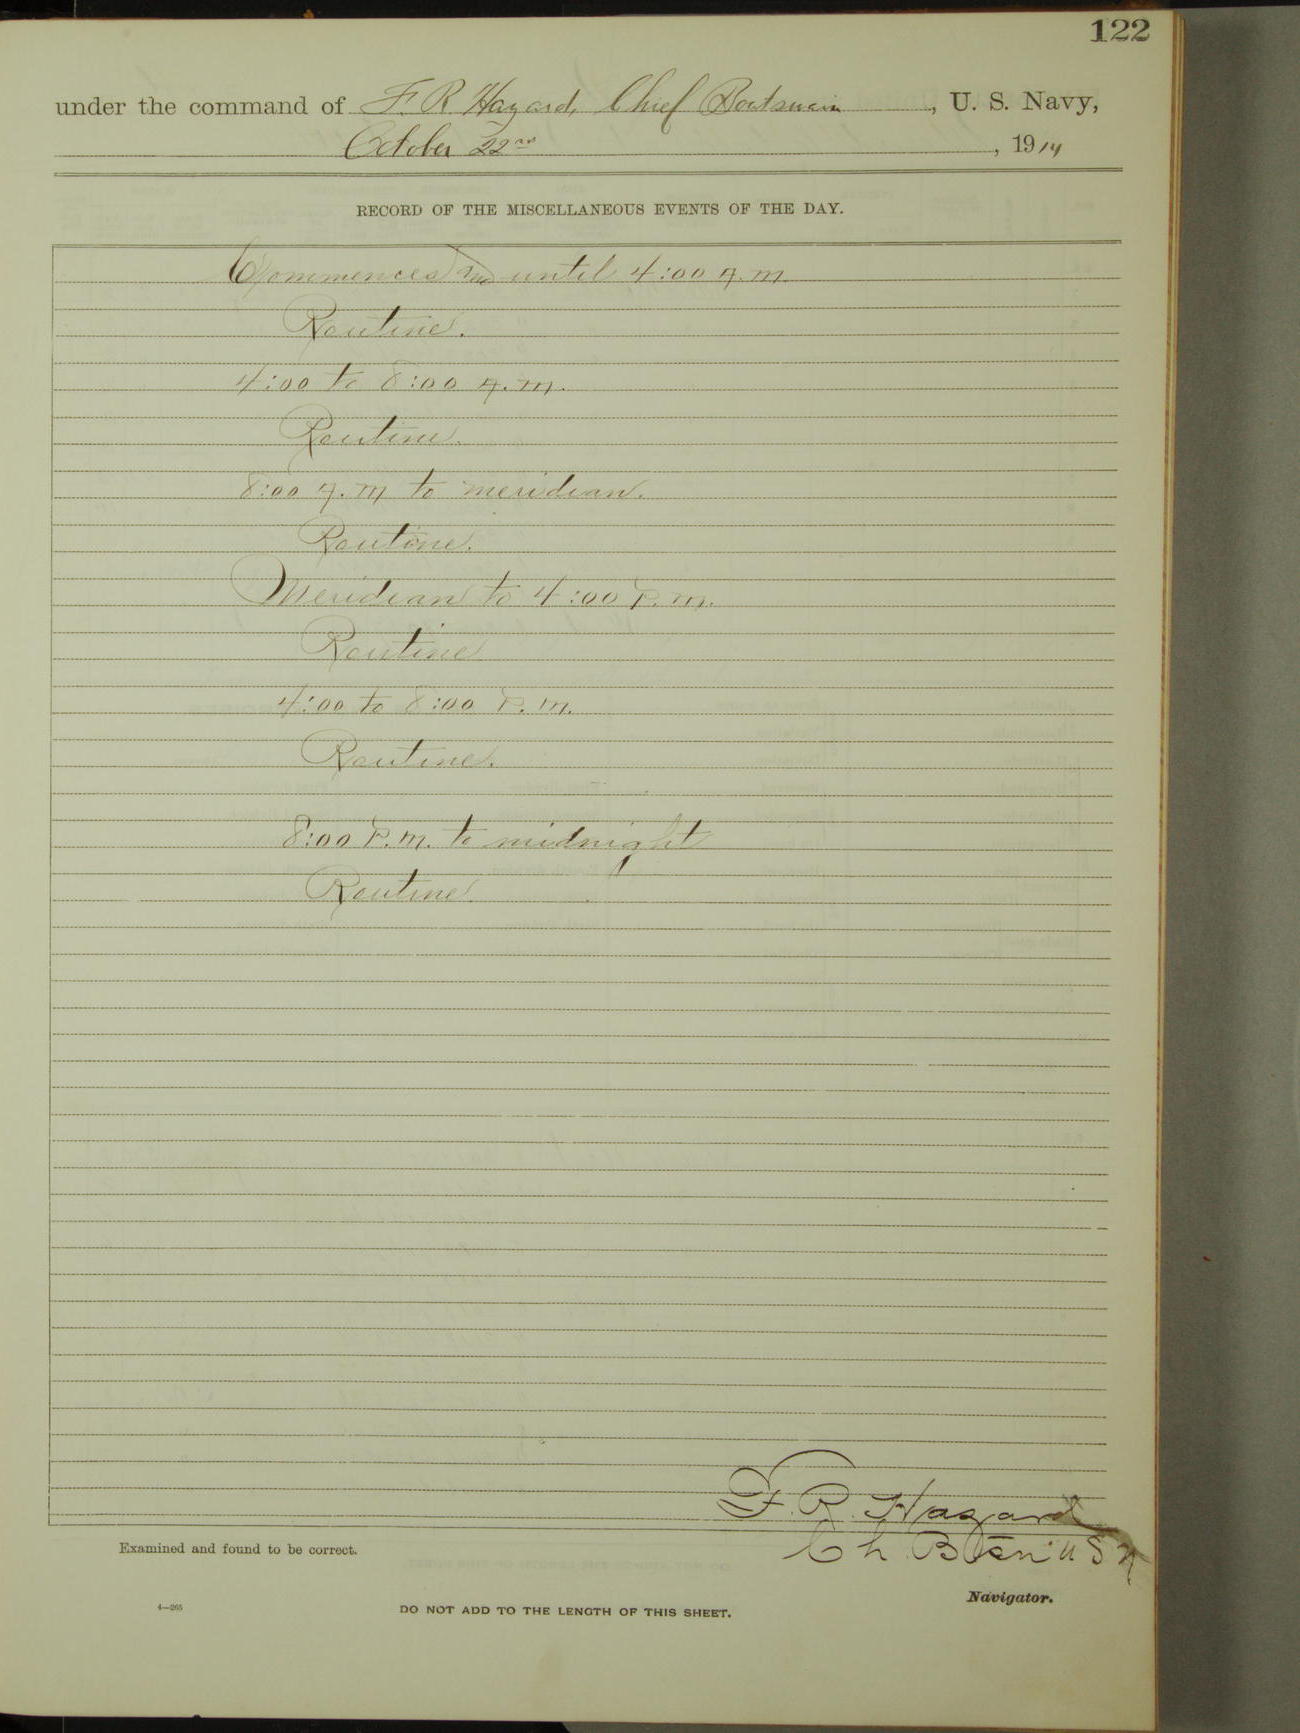 122
under the command of F. R. Hazard, Chief Boatswain, U. S. Navy,
October 22nd, 1914
RECORD OF THE MISCELLANEOUS EVENTS OF THE DAY.
Commences and until 4:00 A.M.
Routine.
4:00 to 8:00 A.M.
Routine.
8:00 A.M to meridian.
Routine.
Meridian to 4:00 P.M.
Routine
4:00 to 8:00 P.M.
Routine.
8:00 P.M. to midnight
Routine.
F. R. Hazard
Ch. Btsn U S N
Examined and found to be correct.
Navigator.
4—265
DO NOT ADD TO THE LENGTH OF THIS SHEET.